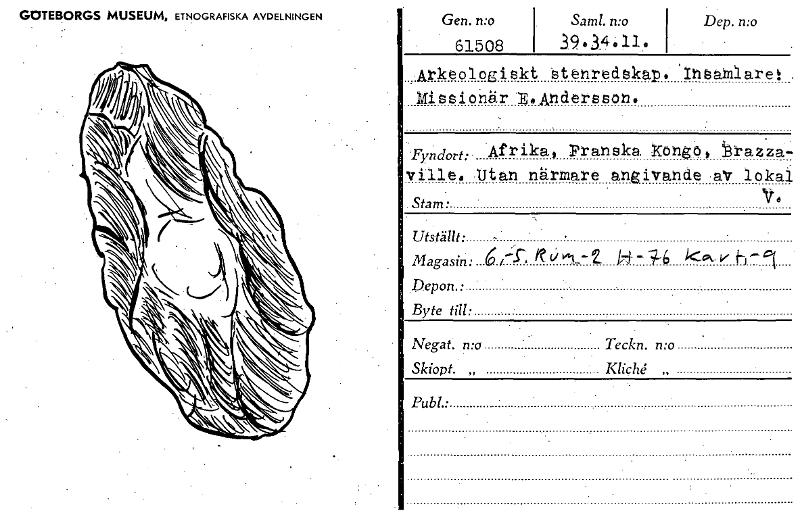 GÖTEBORGS MUSEUM, ETNOGRAFISKA AVDELNINGEN
Gen. n:o Saml. n:o Dep. n:o
61508 39.34.11.
Arkeologiskt stenredskap. Insamlare:
Missionär E.Andersson.
Fyndort: Afrika, Franska Kongo, Brazza-
ville. Utan närmare angivande av lokal
V.
Stam:
Utställt:
Magasin: 6.-5. Rum-2 H-76 Kart.-9
Depon.:
Byte till:
Negat. n:o Teckn. n:o
Skiopt. „ Kliché „
Publ.: